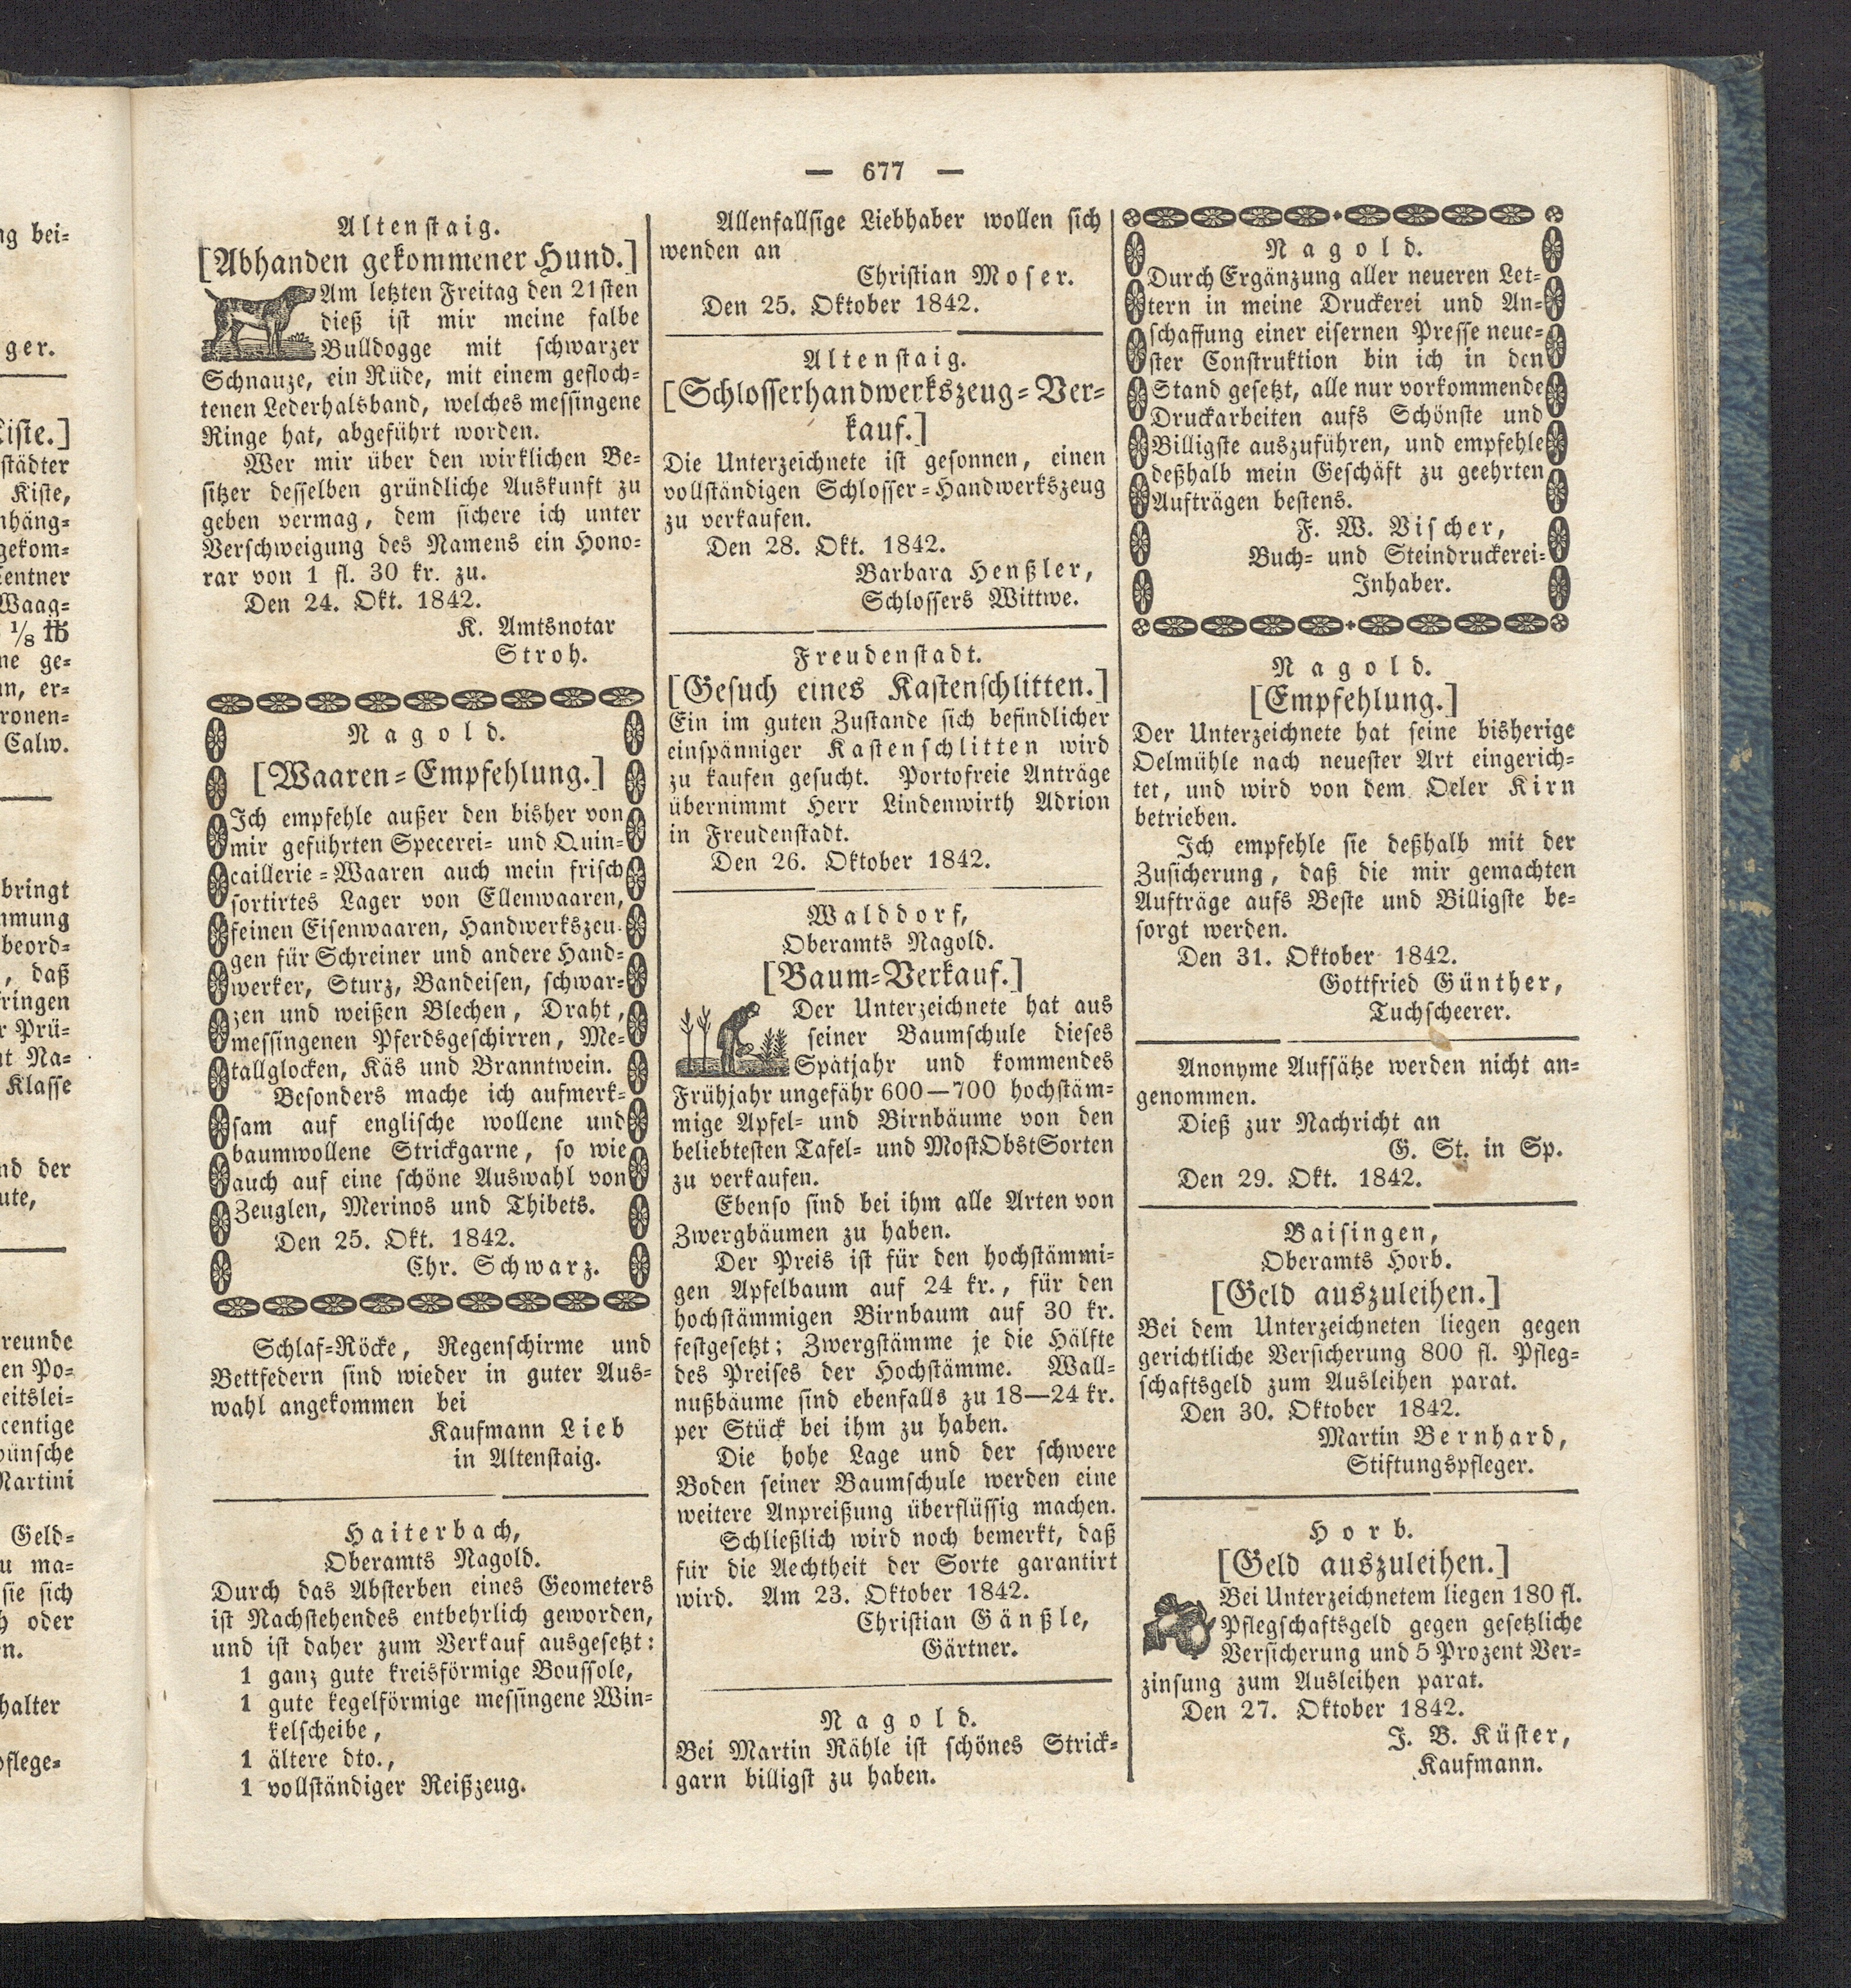 — 677 —
Altenstaig.
[Abhanden gekommener Hund.]
Am letzten Freitag den 21sten
dieß ist mir meine falbe
Bulldogge mit schwarzer
Schnauze, ein Rüde, mit einem gefloch-
tenen Lederhalsband, welches messingene
Ringe hat, abgeführt worden.
Wer mir über den wirklichen Be-
sitzer desselben gründliche Auskunft zu
geben vermag, dem sichere ich unter
Verschweigung des Namens ein Hono-
rar von 1 fl. 30 kr. zu.
Den 24. Okt. 1842.
K. Amtsnotar
Stroh.
Nagold.
[Waaren-Empfehlung.]
Ich empfehle außer den bisher von
mir geführten Specerei- und Quin-
caillerie-Waaren auch mein frisch
sortirtes Lager von Ellenwaaren,
feinen Eisenwaaren, Handwerkszeu-
gen für Schreiner und andere Hand-
werker, Sturz, Bandeisen, schwar-
zen und weißen Blechen, Draht,
messingenen Pferdsgeschirren, Me-
tallglocken, Käs und Branntwein.
Besonders mache ich aufmerk-
sam auf englische wollene und
baumwollene Strickgarne, so wie
auch auf eine schöne Auswahl von
Zeuglen, Merinos und Thibets.
Den 25. Okt. 1842.
Chr. Schwarz.
Schlaf-Röcke, Regenschirme und
Bettfedern sind wieder in guter Aus-
wahl angekommen bei
Kaufmann Lieb
in Altenstaig.
Haiterbach,
Oberamts Nagold.
Durch das Absterben eines Geometers
ist Nachstehendes entbehrlich geworden,
und ist daher zum Verkauf ausgesetzt:
1 ganz gute kreisförmige Boussole,
1 gute kegelförmige messingene Win-
kelscheibe,
1 ältere dto.,
1 vollständiger Reißzeug.
Allenfallsige Liebhaber wollen sich
wenden an
Christian Moser.
Den 25. Oktober 1842.
Altenstaig.
[Schlosserhandwerkszeug-Ver-
kauf.]
Die Unterzeichnete ist gesonnen, einen
vollständigen Schlosser-Handwerkszeug
zu verkaufen.
Den 28. Okt. 1842.
Barbara Henßler,
Schlossers Wittwe.
Freudenstadt.
[Gesuch eines Kastenschlitten.]
Ein im guten Zustande sich befindlicher
einspänniger Kastenschlitten wird
zu kaufen gesucht. Portofreie Anträge
übernimmt Herr Lindenwirth Adrion
in Freudenstadt.
Den 26. Oktober 1842.
Walddorf,
Oberamts Nagold.
[Baum-Verkauf.]
Der Unterzeichnete hat aus
seiner Baumschule dieses
Spätjahr und kommendes
Frühjahr ungefähr 600—700 hochstäm-
mige Apfel- und Birnbäume von den
beliebtesten Tafel- und MostObstSorten
zu verkaufen.
Ebenso sind bei ihm alle Arten von
Zwergbäumen zu haben.
Der Preis ist für den hochstämmi-
gen Apfelbaum auf 24 kr., für den
hochstämmigen Birnbaum auf 30 kr.
festgesetzt; Zwergstämme je die Hälfte
des Preises der Hochstämme. Wall-
nußbäume sind ebenfalls zu 18—24 kr.
per Stück bei ihm zu haben.
Die hohe Lage und der schwere
Boden seiner Baumschule werden eine
weitere Anpreißung überflüssig machen.
Schließlich wird noch bemerkt, daß
für die Aechtheit der Sorte garantirt
wird. Am 23. Oktober 1842.
Christian Gänßle,
Gärtner.
Nagold.
Bei Martin Rähle ist schönes Strick-
garn billigst zu haben.
Nagold.
Durch Ergänzung aller neueren Let-
tern in meine Druckerei und An-
schaffung einer eisernen Presse neue-
ster Construktion bin ich in den
Stand gesetzt, alle nur vorkommende
Druckarbeiten aufs Schönste und
Billigste auszuführen, und empfehle
deßhalb mein Geschäft zu geehrten
Aufträgen bestens.
F. W. Vischer,
Buch- und Steindruckerei-
Inhaber.
Nagold.
[Empfehlung.]
Der Unterzeichnete hat seine bisherige
Oelmühle nach neuester Art eingerich-
tet, und wird von dem Oeler Kirn
betrieben.
Ich empfehle sie deßhalb mit der
Zusicherung, daß die mir gemachten
Aufträge aufs Beste und Billigste be-
sorgt werden.
Den 31. Oktober 1842.
Gottfried Günther,
Tuchscheerer.
Anonyme Aufsätze werden nicht an-
genommen.
Dieß zur Nachricht an
G. St. in Sp.
Den 29. Okt. 1842.
Baisingen,
Oberamts Horb.
[Geld auszuleihen.]
Bei dem Unterzeichneten liegen gegen
gerichtliche Versicherung 800 fl. Pfleg-
schaftsgeld zum Ausleihen parat.
Den 30. Oktober 1842.
Martin Bernhard,
Stiftungspfleger.
Horb.
[Geld auszuleihen.]
Bei Unterzeichnetem liegen 180 fl.
Pflegschaftsgeld gegen gesetzliche
Versicherung und 5 Prozent Ver-
zinsung zum Ausleihen parat.
Den 27. Oktober 1842.
J. B. Küster,
Kaufmann.